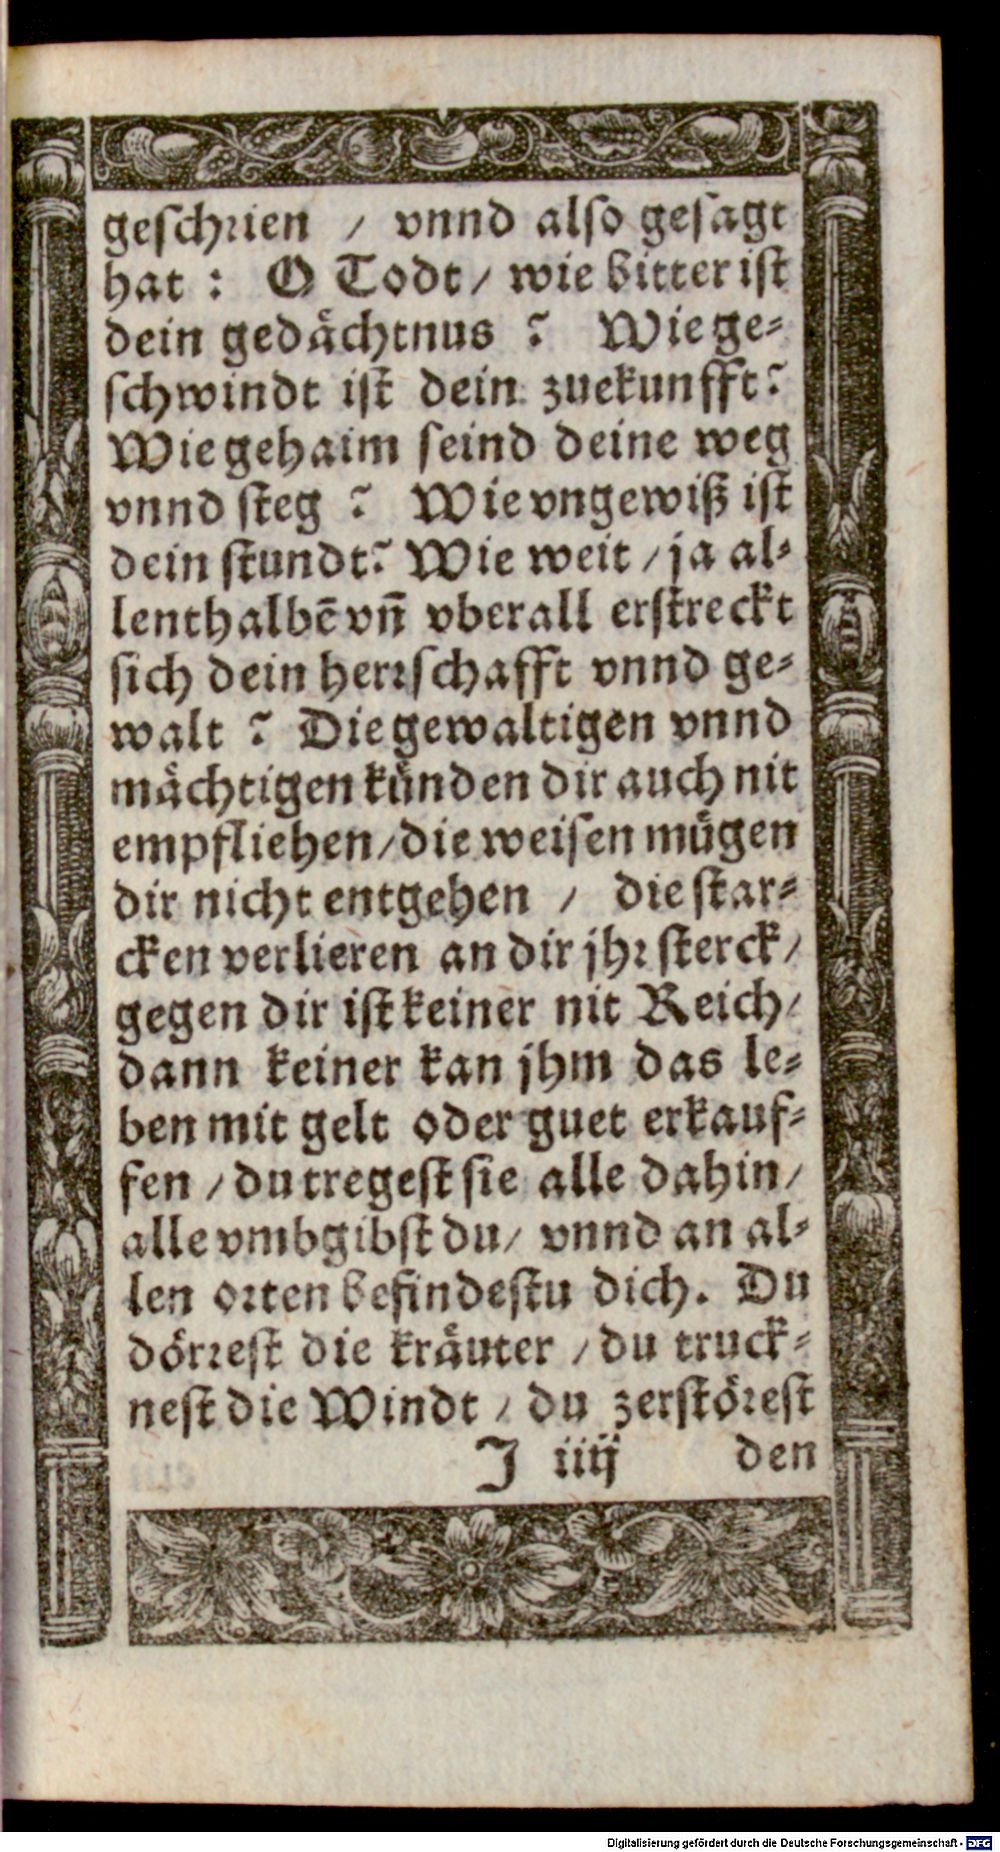 geschrien / vnnd also gesagt
hat : O Todt / wie bitter ist
dein gedaͤchtnus ? Wie ge⸗
schwindt ist dein zuekunfft?
Wie gehaim seind deine weg
vnnd steg ? Wie vngewiß ist
dein stundt? Wie weit / ja al⸗
lenthalbẽ vnñ vberall erstreckt
sich dein herrschafft vnnd ge⸗
walt ? Die gewaltigen vnnd
maͤchtigen kuͤnden dir auch nit
empfliehen / die weisen muͤgen
dir nicht entgehen / die star⸗
cken verlieren an dir jhr sterck /
gegen dir ist keiner nit Reich /
dann keiner kan jhm das le⸗
ben mit gelt oder guet erkauf⸗
fen / du tregest sie alle dahin /
alle vmbgibst du / vnnd an al⸗
len orten befindestu dich. Du
doͤrrest die kraͤuter / du truck⸗
nest die Windt / du zerstoͤrest
J iiij den
Digitalisierung gefördert durch die Deutsche Forschungsgemeinschaft - DFG